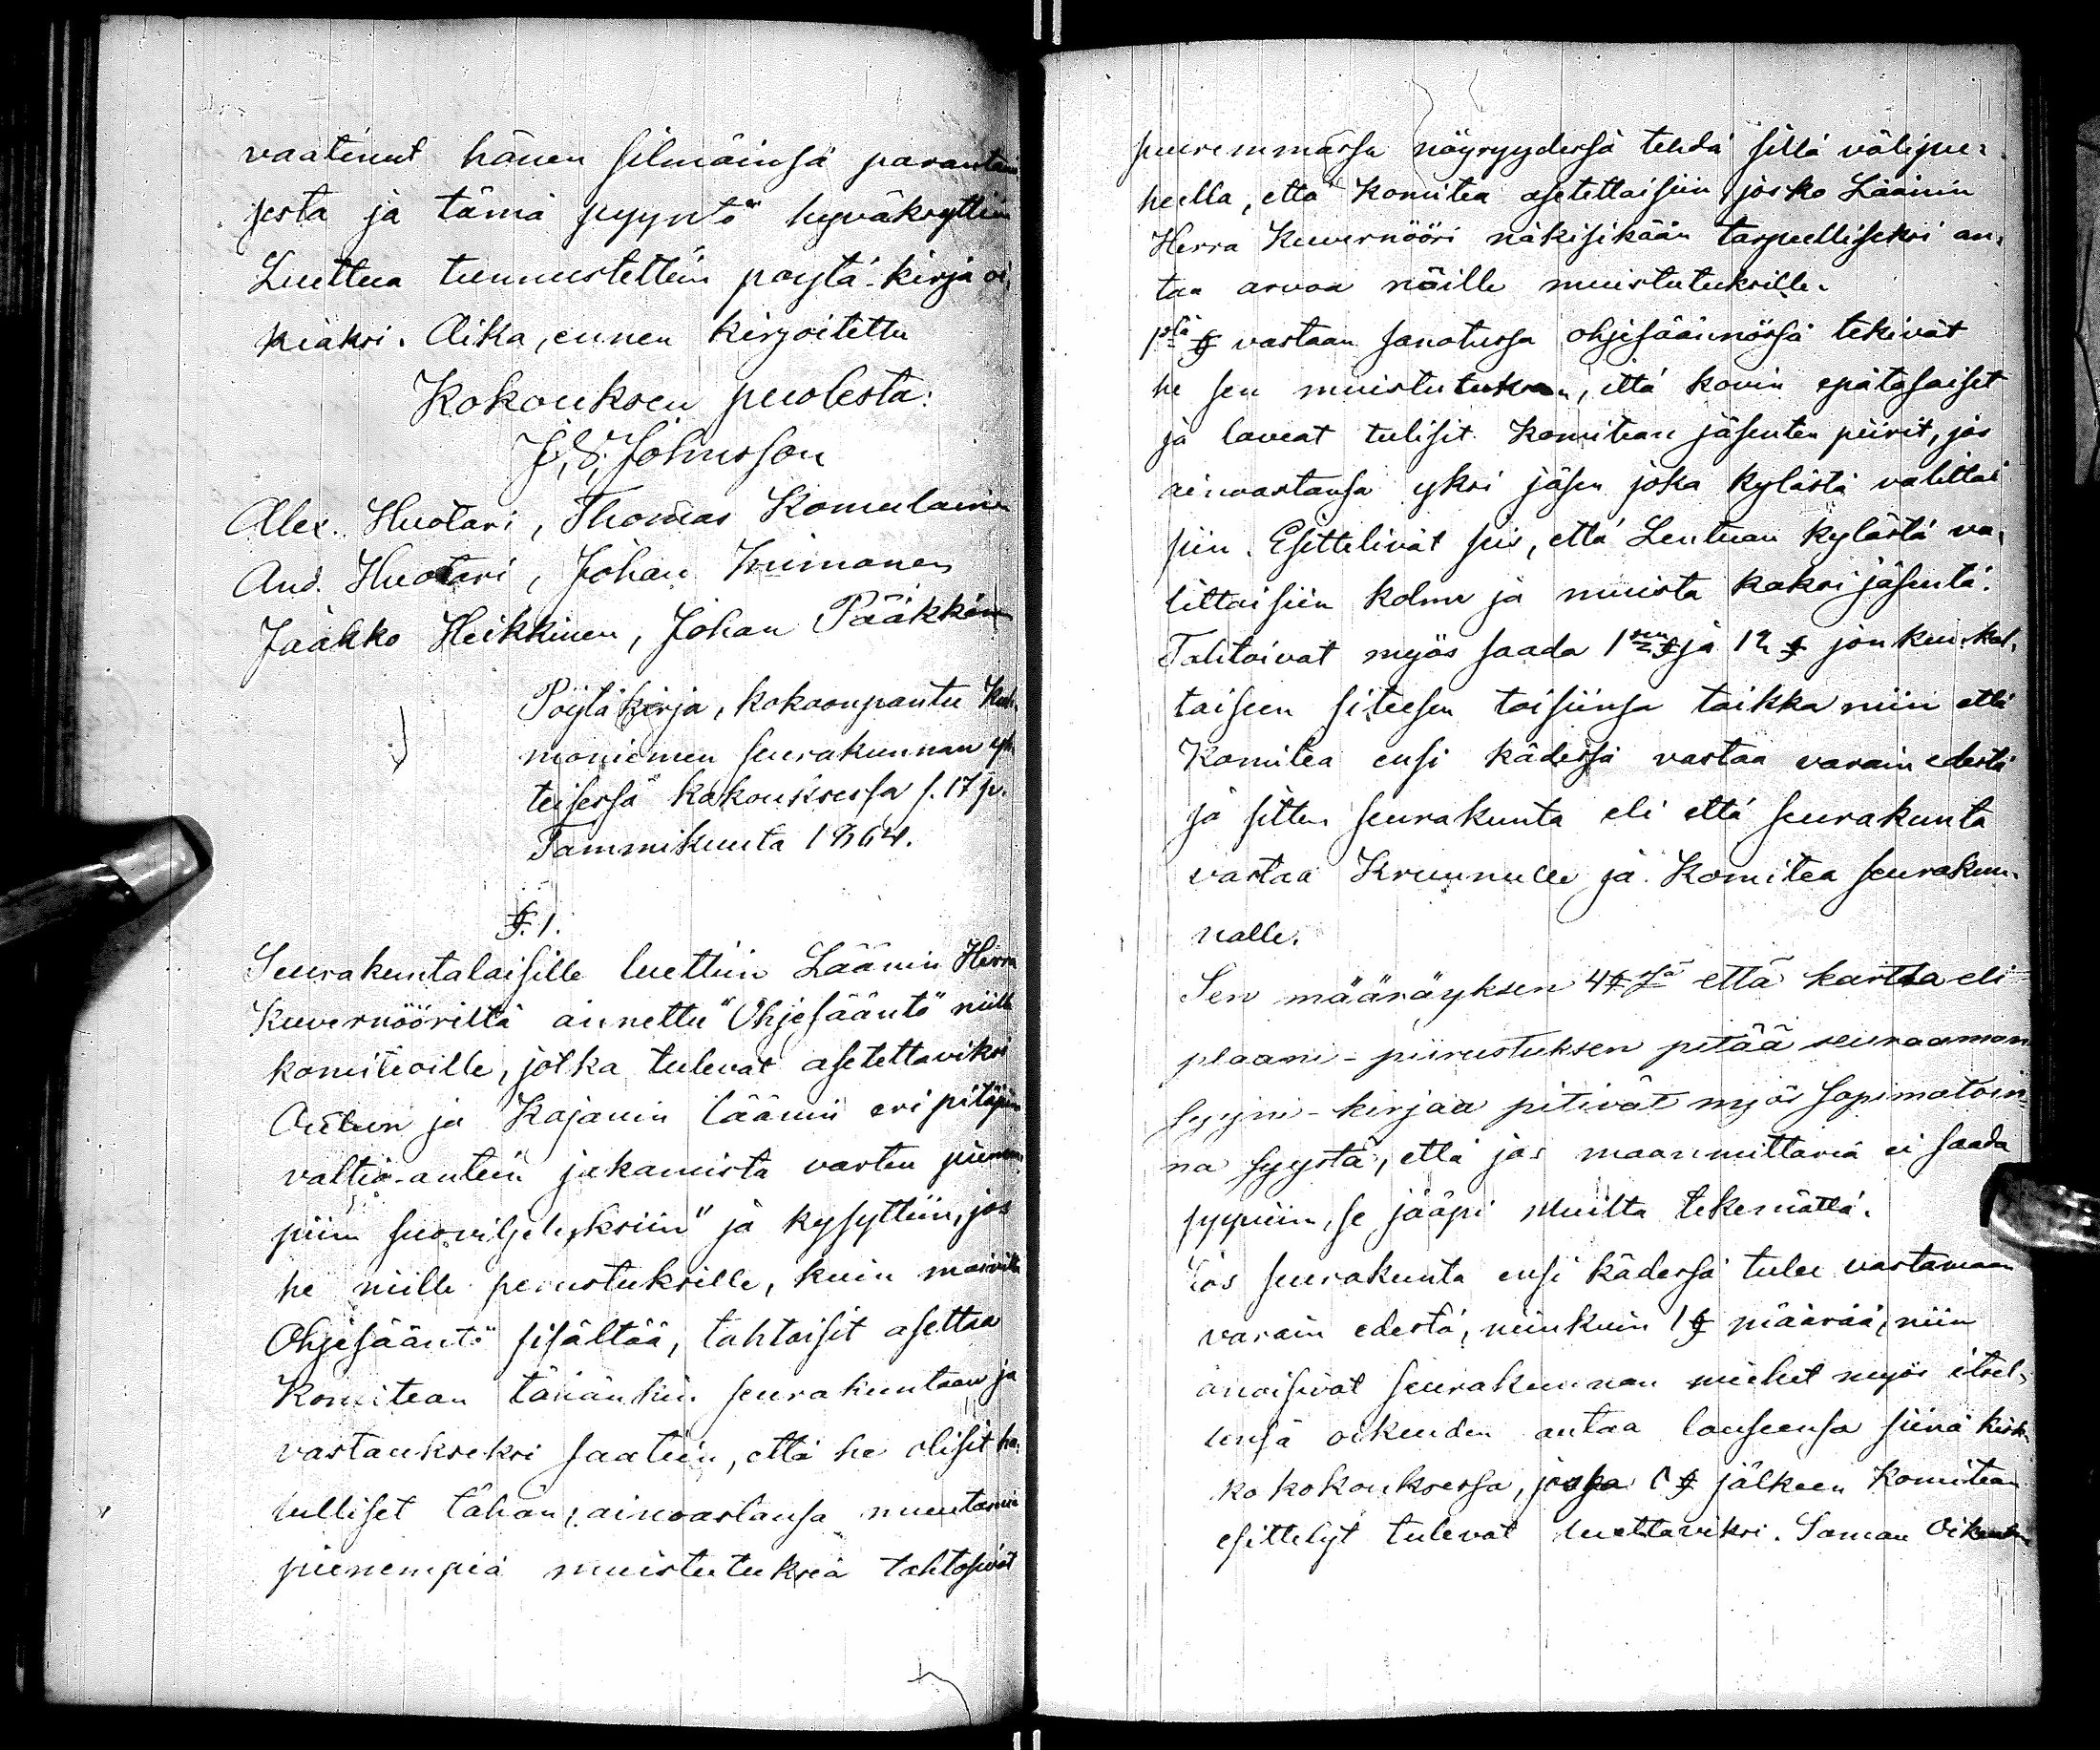 vaatinut hänen silmäinsä parantami
sesta ja tämä pyyntö hyväksyttiin
Luettua tunnustettiin pöytä-kirja oi,
kiaksi. Aika, ennen kirjoitettu
Kokouksen puolesta:
J. E. Johnsson
Alex. Huotari, Thomas Komulainen
And. Huotari, Johan Kiimanen
Jaakko Heikkinen, Johan Pääkkönen
Pöytäkirja, kokoonpantu Kuh,
moniemen seurakunnan yh,
teisessä kokouksessa s. 17 p.
Tammikuuta 1864.
§. 1.
Seurakuntalaisille luettiin Läänin Herra
Kuvernööriltä annettu "Ohjesääntö niille
komiteoille, jotka tulevat asetettaviksi
Oulun ja Kajanin läänin eri pitäjiin
valtio-antein jakamista varten pienem,
piin suoviljelyksiin" ja kysyttiin, jos
he niille perustuksille, kuin mainittu
Ohjesääntö sisältää, tahtoisit asettaa
Komitean tähänkin seurakuntaan ja
vastaukseksi saatiin, että he olisit ha,
lulliset tähän, ainoastansa muutamia
pienempiä muistutuksia tahtosivat
suuremmassa nöyryydessä tehdä sillä välipu,
heella, että Komitea asetettaisiin josko Läänin
Herra Kuvernööri näkisikään tarpeelliseksi an,
taa arvoa näille muistutuksille.
1stä § vastaan sanotussa ohjesäännössä tekivät
he sen muistutuksen, että kovin epätasaiset
ja laveat tulisit Komitean jäsenten piirit, jos
ainoastansa yksi jäsen joka kylästä valittai
siin. Esittelivät siis, että Lentuan kylästä va,
littaisiin kolme ja muista kaksi jäsentä.
Tahtoivat myös saada 1sen § ja 12 § jonkun kal,
taiseen siteesen toisiinsa taikka niin että
Komitea ensi kädessä vastaa varain edestä
ja sitten seurakunta eli että seurakunta
vastaa Kruunulle ja Komitea seurakun,
nalle.
Sen määräyksen 4 §ssä että kartta eli
plaani-piirustuksen pitää seuraaman
syyni-kirjaa pitivät myös sopimatoin,
na syystä, että jos maanmittaria ei saada
syyniin, se jääpi muilta tekemättä.
Jos seurakunta ensi kädessä tulee vastamaan
varain edestä, niinkuin 1 § määrää, niin
anoisivat seurakunnan miehet myös itsel,
lensä oikeuden antaa lauseensa siinä kirk,
ko kokouksessa, jossa § jälkeen Komitean
esittelyt tulevat luettaviksi. Saman Oikeuden